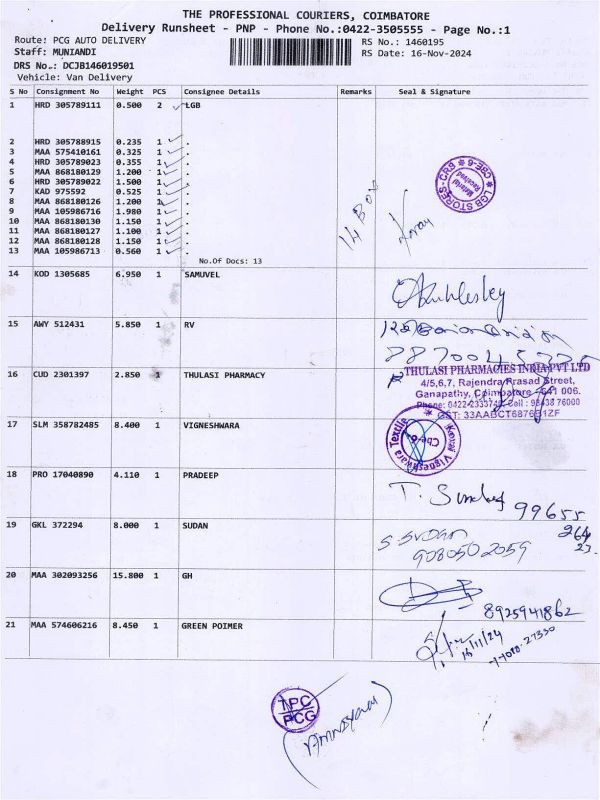 THE PROFESSIONAL COURIERS, COIMBATORE
Delivery Runsheet - PNP - Phone No.:0422-3505555 - Page No.:1
Route: PCG AUTO DELIVERY
RS No.: 1460195
Staff: MUNIANDI
RS Date: 16-Nov-2024
DRS No.: DCJB146019501
Vehicle: Van Delivery
S No Consignment No Weight PCS Consignee Details Remarks Seal & Signature
1 HRD 305789111 0.500 2 LGB
2 HRD 305788915 0.235 1 .
3 MAA 575410161 0.325 1 .
4 HRD 305789023 0.355 1 .
5 MAA 868180129 1.200 1 .
6 HRD 305789022 1.500 1 .
7 KAD 975592 0.525 1 .
8 MAA 868180126 1.200 1 .
9 MAA 105986716 1.980 1 .
10 MAA 868180130 1.150 1 .
11 MAA 868180127 1.100 1 .
12 MAA 868180128 1.150 1 .
13 MAA 105986713 0.560 1 .
No.Of Docs: 13
14 BOX
LGB STORES - CRS CBE-6
Material
Received
14 KOD 1305685 6.950 1 SAMUVEL
15 AWY 512431 5.850 1 RV
16 CUD 2301397 2.850 1 THULASI PHARMACY
THULASI PHARMACIES INDIA PVT LTD
4/5,6,7, Rajendra Prasad Street,
Ganapathy, Coimbatore - 641 006.
GST: 33AABCT6876B1ZF
17 SLM 358782485 8.400 1 VIGNESHWARA
Kovai Vigneshwara Textile
Cbe-6
18 PRO 17040890 4.110 1 PRADEEP
99655
264
23
19 GKL 372294 8.000 1 SUDAN
S. SUDAN
9080502059
20 MAA 302093256 15.800 1 GH
8925941862
21 MAA 574606216 8.450 1 GREEN POIMER
16/11/24
TPC
PCG